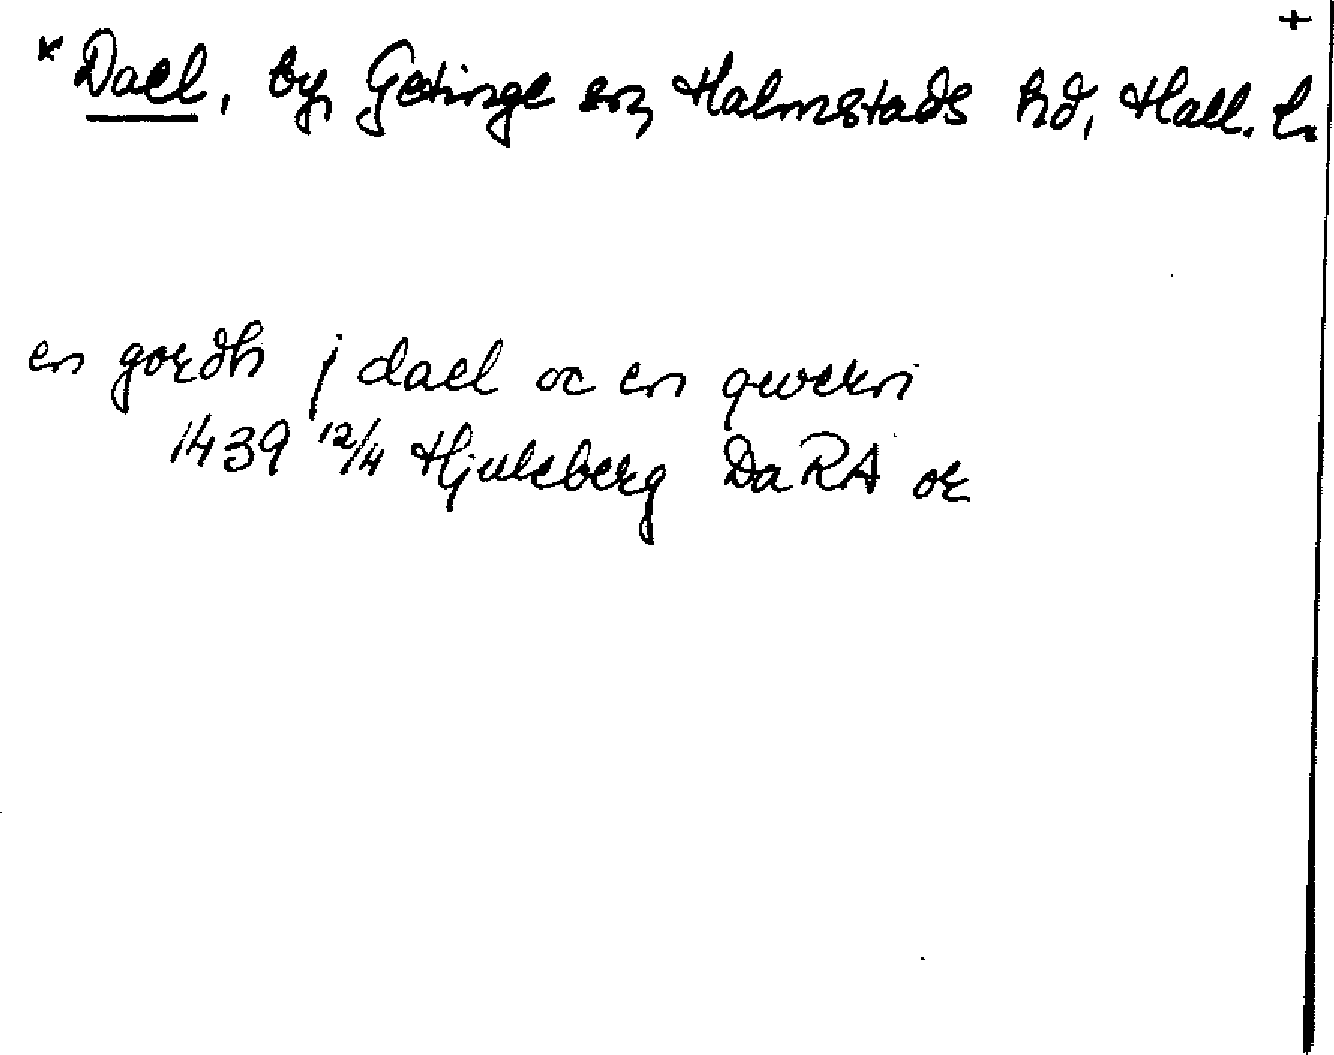 +
* Dael, by, Getinge sn, Halmstads hd, Hall. l.
en gordh j dael oc en qwern
1439 12/4 Hjuleberg DaRA or